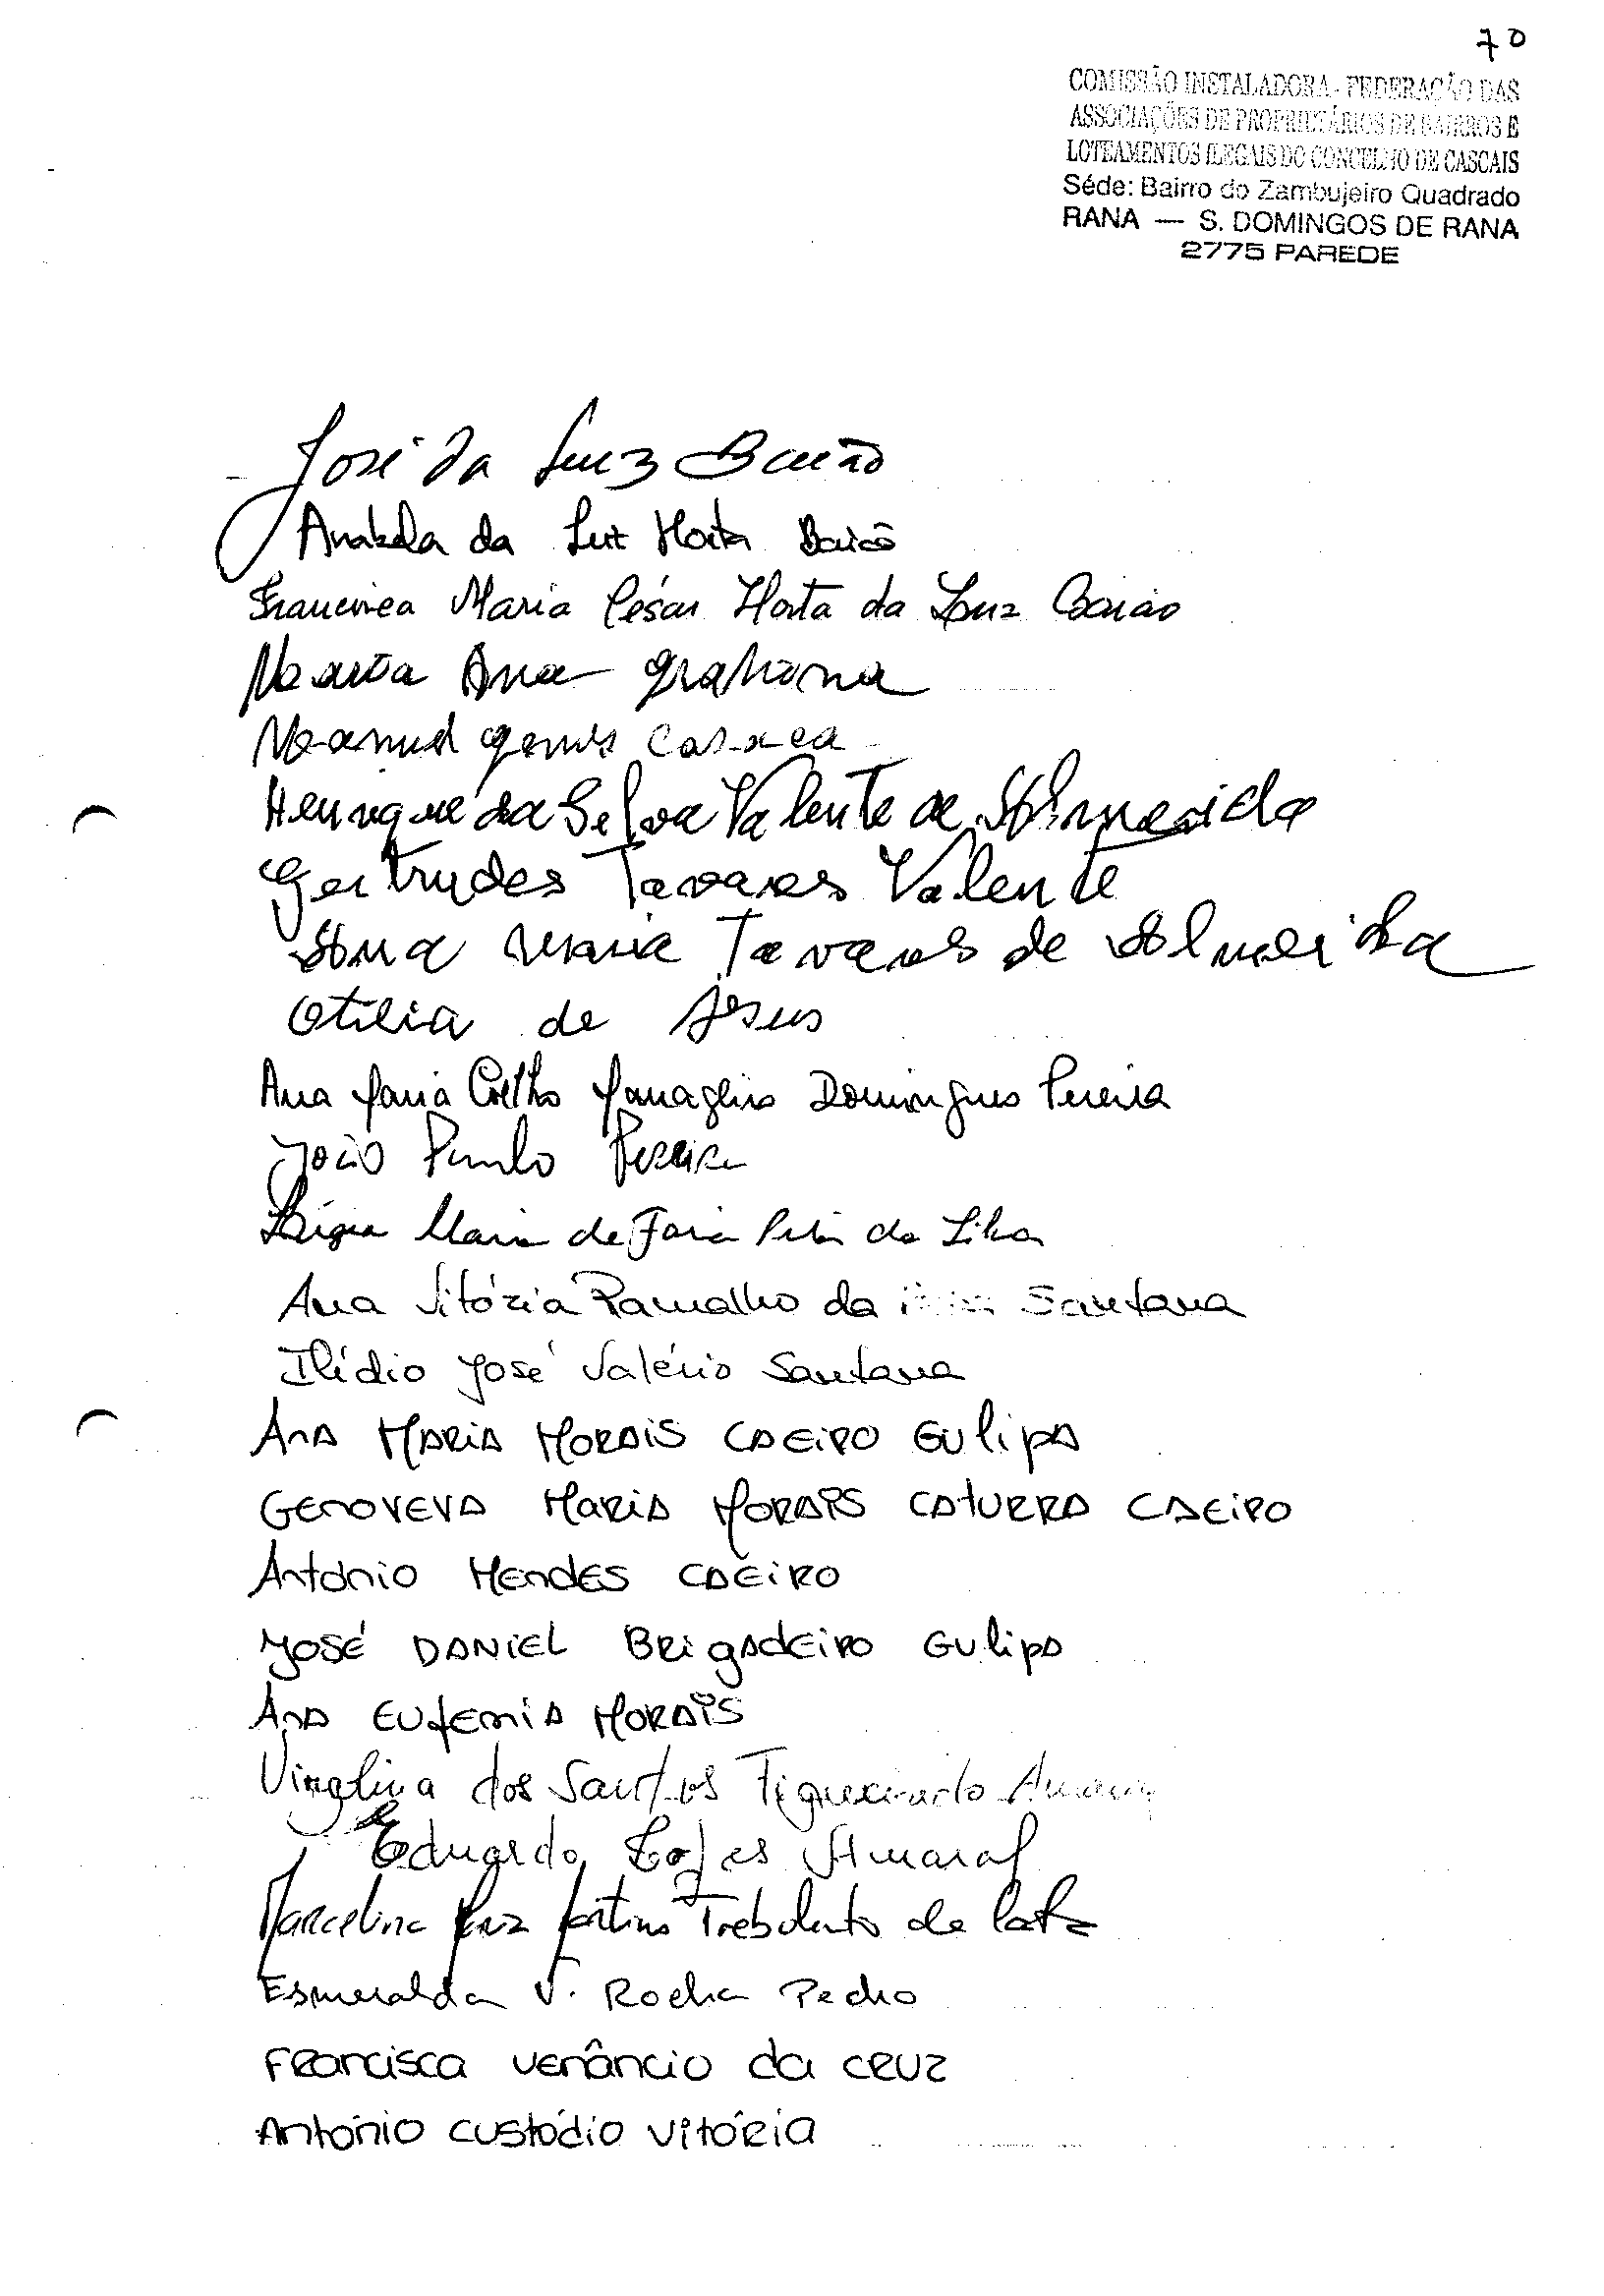 70
COMISSÃO INSTALADORA - FEDERAÇÃO DAS
ASSOCIAÇÕES DE PROPRIETÁRIOS DE BAIRROS E
LOTEAMENTOS ILEGAIS DO CONCELHO DE CASCAIS
Séde: Bairro do Zambujeiro Quadrado
RANA — S. DOMINGOS DE RANA
2775 PAREDE
José da Luz Baião
Anabela da Luz Horta Baião
Francisca Maria César Horta da Luz Baião
Maria Ana
Manuel Casaca
Henrique da Selva Valente de Almerida
Gertrudes Tavares Valente
Ana Maria Tavares de Almeida
Otilia de Jesus
Ana Maria Coelho Domingues Pereira
João Paulo Pereira
Lígia Maria de Faria da Silva
Ana Vitória Ramalho da Santana
Ilídio José Valério Santana
Ana MARIA MORAIS CAEIRO Gulipa
GENOVEVA MARIA MORAIS CATURRA CAEIRO
António Mendes CAEIRO
JOSÉ DANIEL BRIgAdEIRO Gulipa
Ana EUfEMIA MORAIS
dos Santos Figueiredo
Eduardo Lopes Amaral
Marcelino Luz Martins de
Esmeralda V. Rocha Pedro
Francisca Venâncio da Cruz
António Custódio Vitória